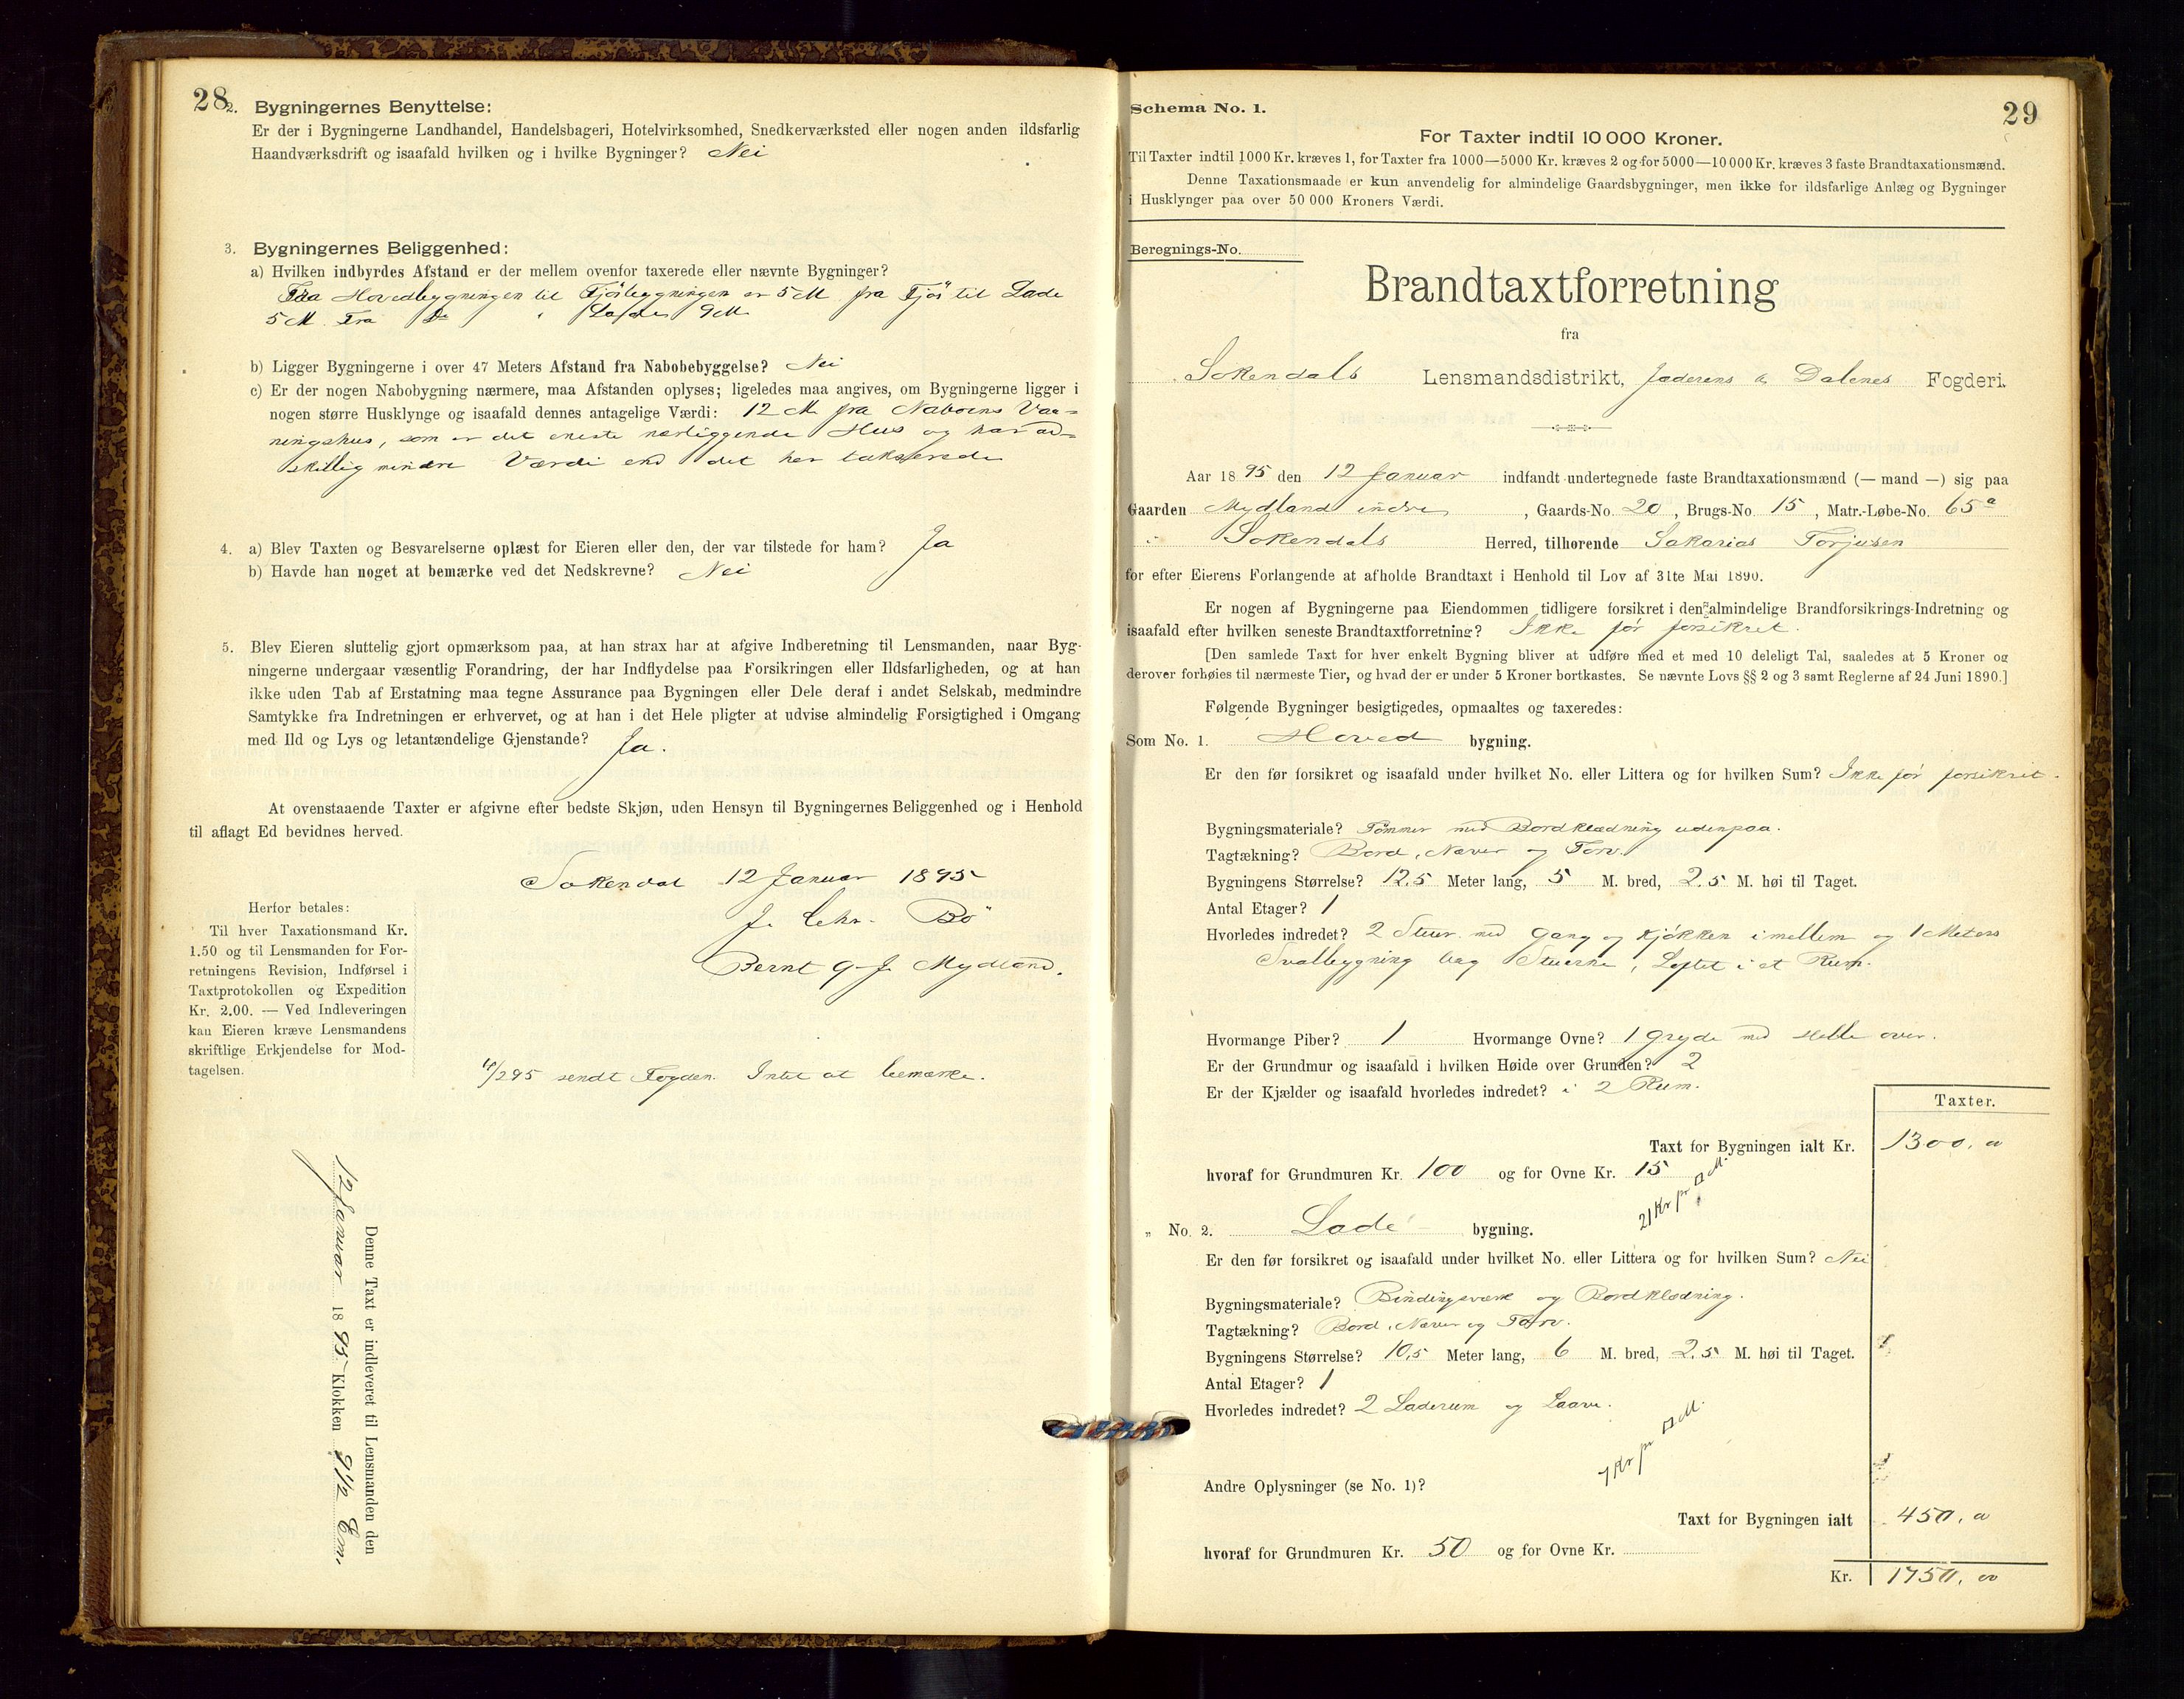 28
2. Bygningernes Benyttelse:
Er der i Bygningerne Landhandel, Handelsbageri, Hotelvirksomhed, Snedkerværksted eller nogen anden ildsfarlig
Haandværksdrift og isaafald hvilken og i hvilke Bygninger? Nei
3. Bygningernes Beliggenhed:
a) Hvilken indbyrdes Afstand er der mellem ovenfor taxerede eller nævnte Bygninger?
Fra Hovedbygningen til Fjösbygningen er 5 M. fra Fjös til Lade
5 M. Fra Do " Laden 9 M
b) Ligger Bygningerne i over 47 Meters Afstand fra Nabobebyggelse? Nei
c) Er der nogen Nabobygning nærmere, maa Afstanden oplyses; ligeledes maa angives, om Bygningerne ligger i
nogen større Husklynge og isaafald dennes antagelige Værdi: 12 M. fra Naboens Vaa-
ningshus, som er det eneste nærliggende Hus og har ad-
skillig mindre Værdi end det her takserede
4. a) Blev Taxten og Besvarelserne oplæst for Eieren eller den, der var tilstede for ham? Ja
b) Havde han noget at bemærke ved det Nedskrevne? Nei
5. Blev Eieren sluttelig gjort opmærksom paa, at han strax har at afgive Indberetning til Lensmanden, naar Byg-
ningerne undergaar væsentlig Forandring, der har Indflydelse paa Forsikringen eller Ildsfarligheden, og at han
ikke uden Tab af Erstatning maa tegne Assurance paa Bygningen eller Dele deraf i andet Selskab, medmindre
Samtykke fra Indretningen er erhvervet, og at han i det Hele pligter at udvise almindelig Forsigtighed i Omgang
med Ild og Lys og letantændelige Gjenstande? Ja.
At ovenstaaende Taxter er afgivne efter bedste Skjøn, uden Hensyn til Bygningernes Beliggenhed og i Henhold
til aflagt Ed bevidnes herved.
Sokendal 12 Januar 1895
J. Chr. Bö
Bernt G. J. Mydland.
Herfor betales:
Til hver Taxationsmand Kr.
1.50 og til Lensmanden for For-
retningens Revision, Indførsel i
Taxtprotokollen og Expedition
Kr. 2.00. — Ved Indleveringen
kan Eieren kræve Lensmandens
skriftlige Erkjendelse for Mod-
tagelsen.
/2 95 sendt Fogden. Intet at bemærke.
Denne Taxt er indleveret til Lensmanden den
12 Januar 1895 Klokken 9 1/2 Em.
29
Schema No. 1.
For Taxter indtil 10 000 Kroner.
Til Taxter indtil 1000 Kr. kræves 1, for Taxter fra 1000—5000 Kr. kræves 2 og for 5000—10 000 Kr. kræves 3 faste Brandtaxationsmænd.
Denne Taxationsmaade er kun anvendelig for almindelige Gaardsbygninger, men ikke for ildsfarlige Anlæg og Bygninger
i Husklynger paa over 50 000 Kroners Værdi.
Beregnings-No.
Brandtaxtforretning
fra
Sokendals Lensmandsdistrikt, Jæderens & Dalenes Fogderi.
Aar 1895 den 12 Januar indfandt undertegnede faste Brandtaxationsmænd (— mand —) sig paa
Gaarden Mydland indre, Gaards-No. 20, Brugs-No. 15, Matr.-Løbe-No. 65a
i Sokendals Herred, tilhørende Sakarias Torjusen
for efter Eierens Forlangende at afholde Brandtaxt i Henhold til Lov af 31te Mai 1890.
Er nogen af Bygningerne paa Eiendommen tidligere forsikret i den almindelige Brandforsikrings-Indretning og
isaafald efter hvilken seneste Brandtaxtforretning? Ikke før forsikret.
[Den samlede Taxt for hver enkelt Bygning bliver at udføre med et med 10 deleligt Tal, saaledes at 5 Kroner og
derover forhøies til nærmeste Tier, og hvad der er under 5 Kroner bortkastes. Se nævnte Lovs §§ 2 og 3 samt Reglerne af 24 Juni 1890.]
Følgende Bygninger besigtigedes, opmaaltes og taxeredes:
Som No. 1. Hoved bygning.
Er den før forsikret og isaafald under hvilket No. eller Littera og for hvilken Sum? Ikke før forsikret.
Bygningsmateriale? Tømmer med Bordklædning udenpaa.
Tagtækning? Bord, Næver og Torv.
Bygningens Størrelse? 12,5 Meter lang, 5 M. bred, 2,5 M. høi til Taget.
Antal Etager? 1
Hvorledes indredet? 2 Stuer med Gang og Kjøkken imellem og 1 Meters
Svalbygning bag Stuerne, Loftet i et Rum.
Hvormange Piber? 1 Hvormange Ovne? 1 Gryde med Helle over.
Er der Grundmur og isaafald i hvilken Høide over Grunden? 2
Er der Kjælder og isaafald hvorledes indredet? i 2 Rum.
Taxter.
Taxt for Bygningen ialt Kr. 1300,00
hvoraf for Grundmuren Kr. 100 og for Ovne Kr. 15
21 Kr pr □ M.
„ No. 2. Lade bygning.
Er den før forsikret og isaafald under hvilket No. eller Littera og for hvilken Sum? Nei
Bygningsmateriale? Bindingsværk og Bordklædning.
Tagtækning? Bord, Næver og Torv.
Bygningens Størrelse? 10,5 Meter lang, 6 M. bred, 2,5 M. høi til Taget.
Antal Etager? 1
Hvorledes indredet? 2 Laderum og Laave.
7 Kr pr □ M.
Andre Oplysninger (se No. 1)?
Taxt for Bygningen ialt 450,00
hvoraf for Grundmuren Kr. 50 og for Ovne Kr.
Kr. 1750,00